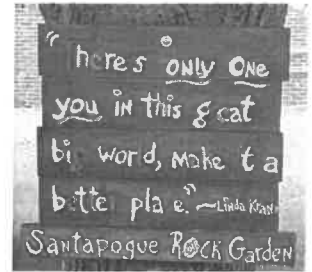 "heres only one
you in this g eat
bi word, make it a
bette pla e." ~Linda Kran
Santapogue Rock Garden